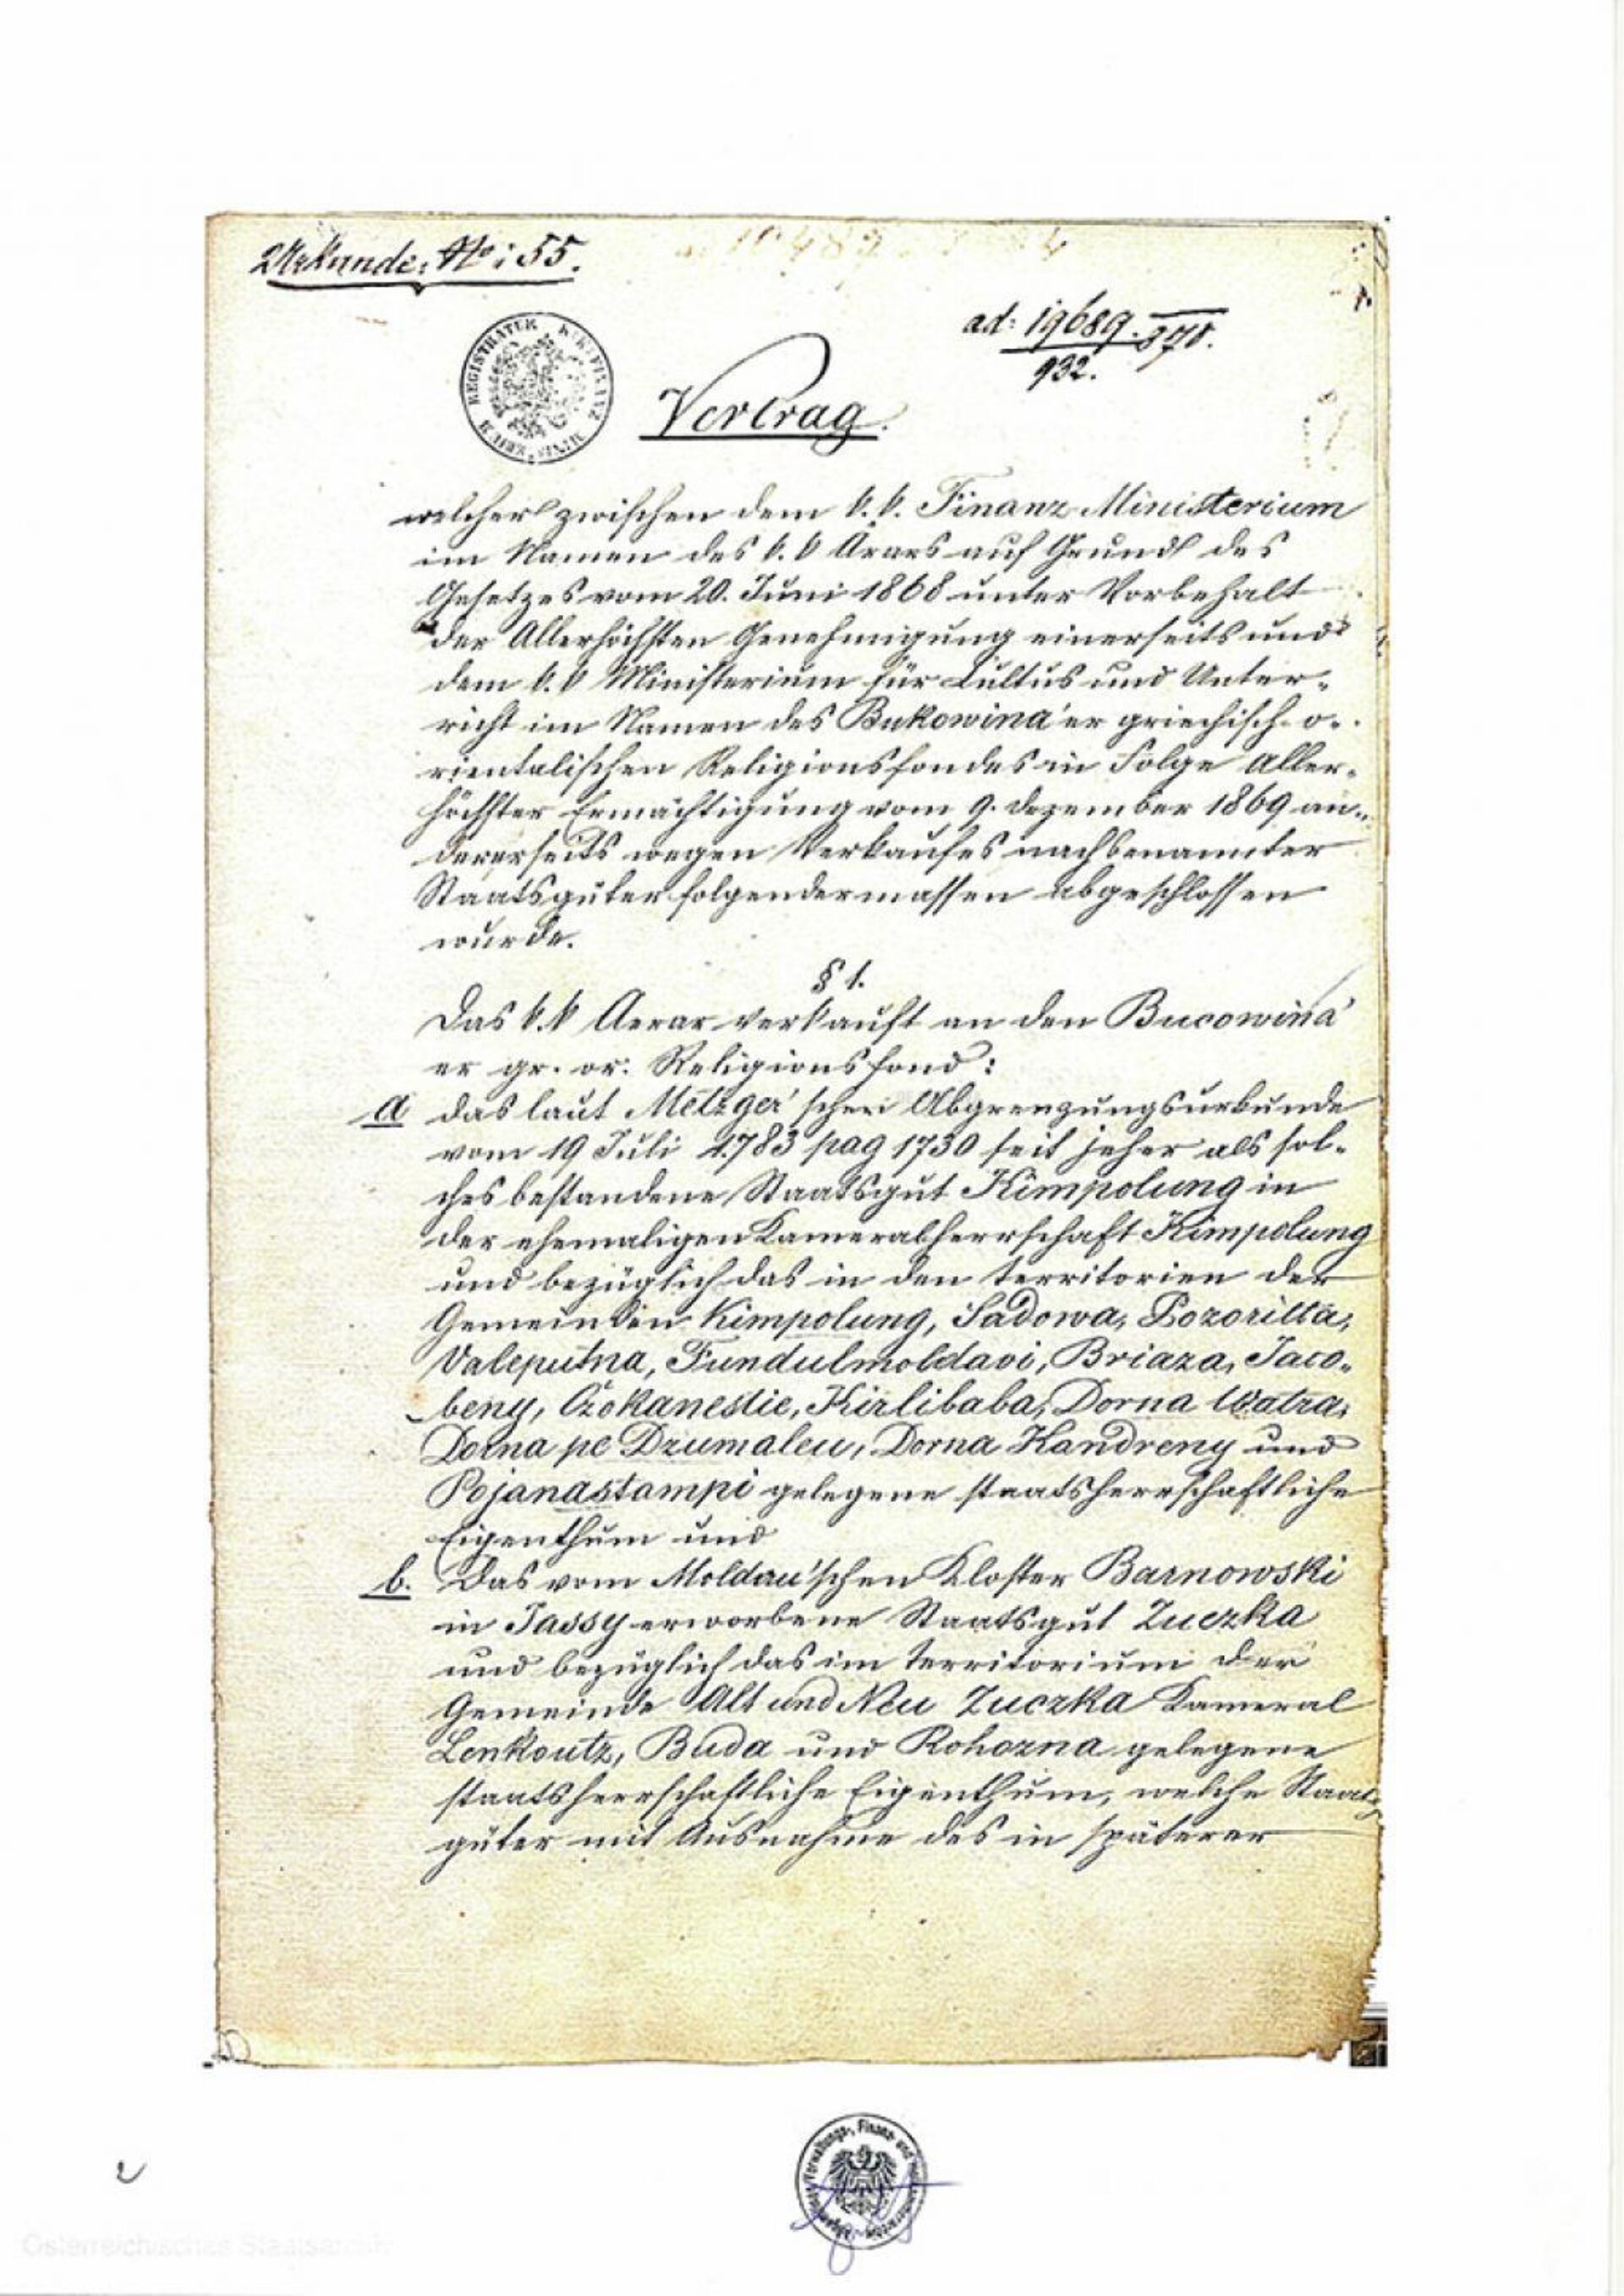 Urkunde: No: 55.
ad: 19689.
932.
Vertrag.
welcher zwischen dem k. k. Finanz Ministerium
im Namen des k. k Ärars auf Grund des
Gesetzes vom 20. Juni 1868 unter Vorbehalt
der Allerhöchsten Genehmigung einerseits und
dem k. k Ministerium für Cultus und Unter-
richt im Namen des Bukowina'er griechisch-o-
rientalischen Religionsfondes in Folge Aller-
höchster Ermächtigung vom 9. Dezember 1869 an-
dererseits wegen Verkaufes nachbenannter
Staatsgüter folgendermassen abgeschlossen
wurde.
§ 1.
Das k. k Aerar verkauft an den Bucowina'
er gr. or. Religionsfond:
a das laut Metzger'schen Abgrenzungsurkunde
vom 19 Juli 1783 pag 1730 seit jeher als sol-
ches bestandene Staatsgut Kimpolung in
der ehemaligen Kameralherrschaft Kimpolung
und bezüglich das in den Territorien der
Gemeinden Kimpolung, Sadowa, Pozoritta,
Valeputna, Fundulmoldavi, Briaza, Jaco-
beny, Czokanestie, Kirlibaba, Dorna Watra,
Dorna pe Dzumaleu, Dorna Kandreny und
Pojanastampi gelegene staatsherrschaftliche
Eigenthum und
b. Das vom Moldau'schen Kloster Barnowski
in Jassy erworbene Staatsgut Zuczka
und bezüglich das im Territorium der
Gemeinde Alt und Neu Zuczka Kameral
Lenkoutz, Buda und Rohozna gelegene
staatsherrschaftliche Eigenthum, welche Staats
güter mit Ausnahme des in späterer
2
Österreichisches Staatsarchiv